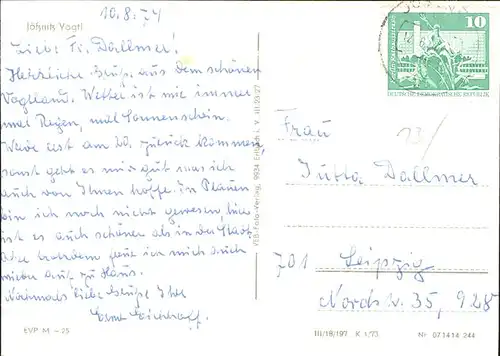 Jößnitz Vogtl
10.8.74
Liebe Fr. Dallmer!
Herzliche Grüße aus dem schönen
Vogtland. Wetter ist wie immer
mal Regen, mal Sonnenschein.
Werde erst am 20. zurück kommen
sonst geht es mir gut was ich
auch von Ihnen hoffe. In Plauen
bin ich noch nicht gewesen, hier
ist es auch schöner als in der Stadt
Aber trotzdem freue ich mich auch
wieder auf zu Haus.
Nochmals liebe Grüße Ihre
EVP M -.25
VEB-Foto-Verlag, 9934 Erlbach i. V. III 23 27
10
DEUTSCHE DEMOKRATISCHE REPUBLIK
13/
Frau
Jutta Dallmer
701 Leipzig
Nordstr. 35, 928
III/18/197 K 1/73 Nr 07 14 14 244